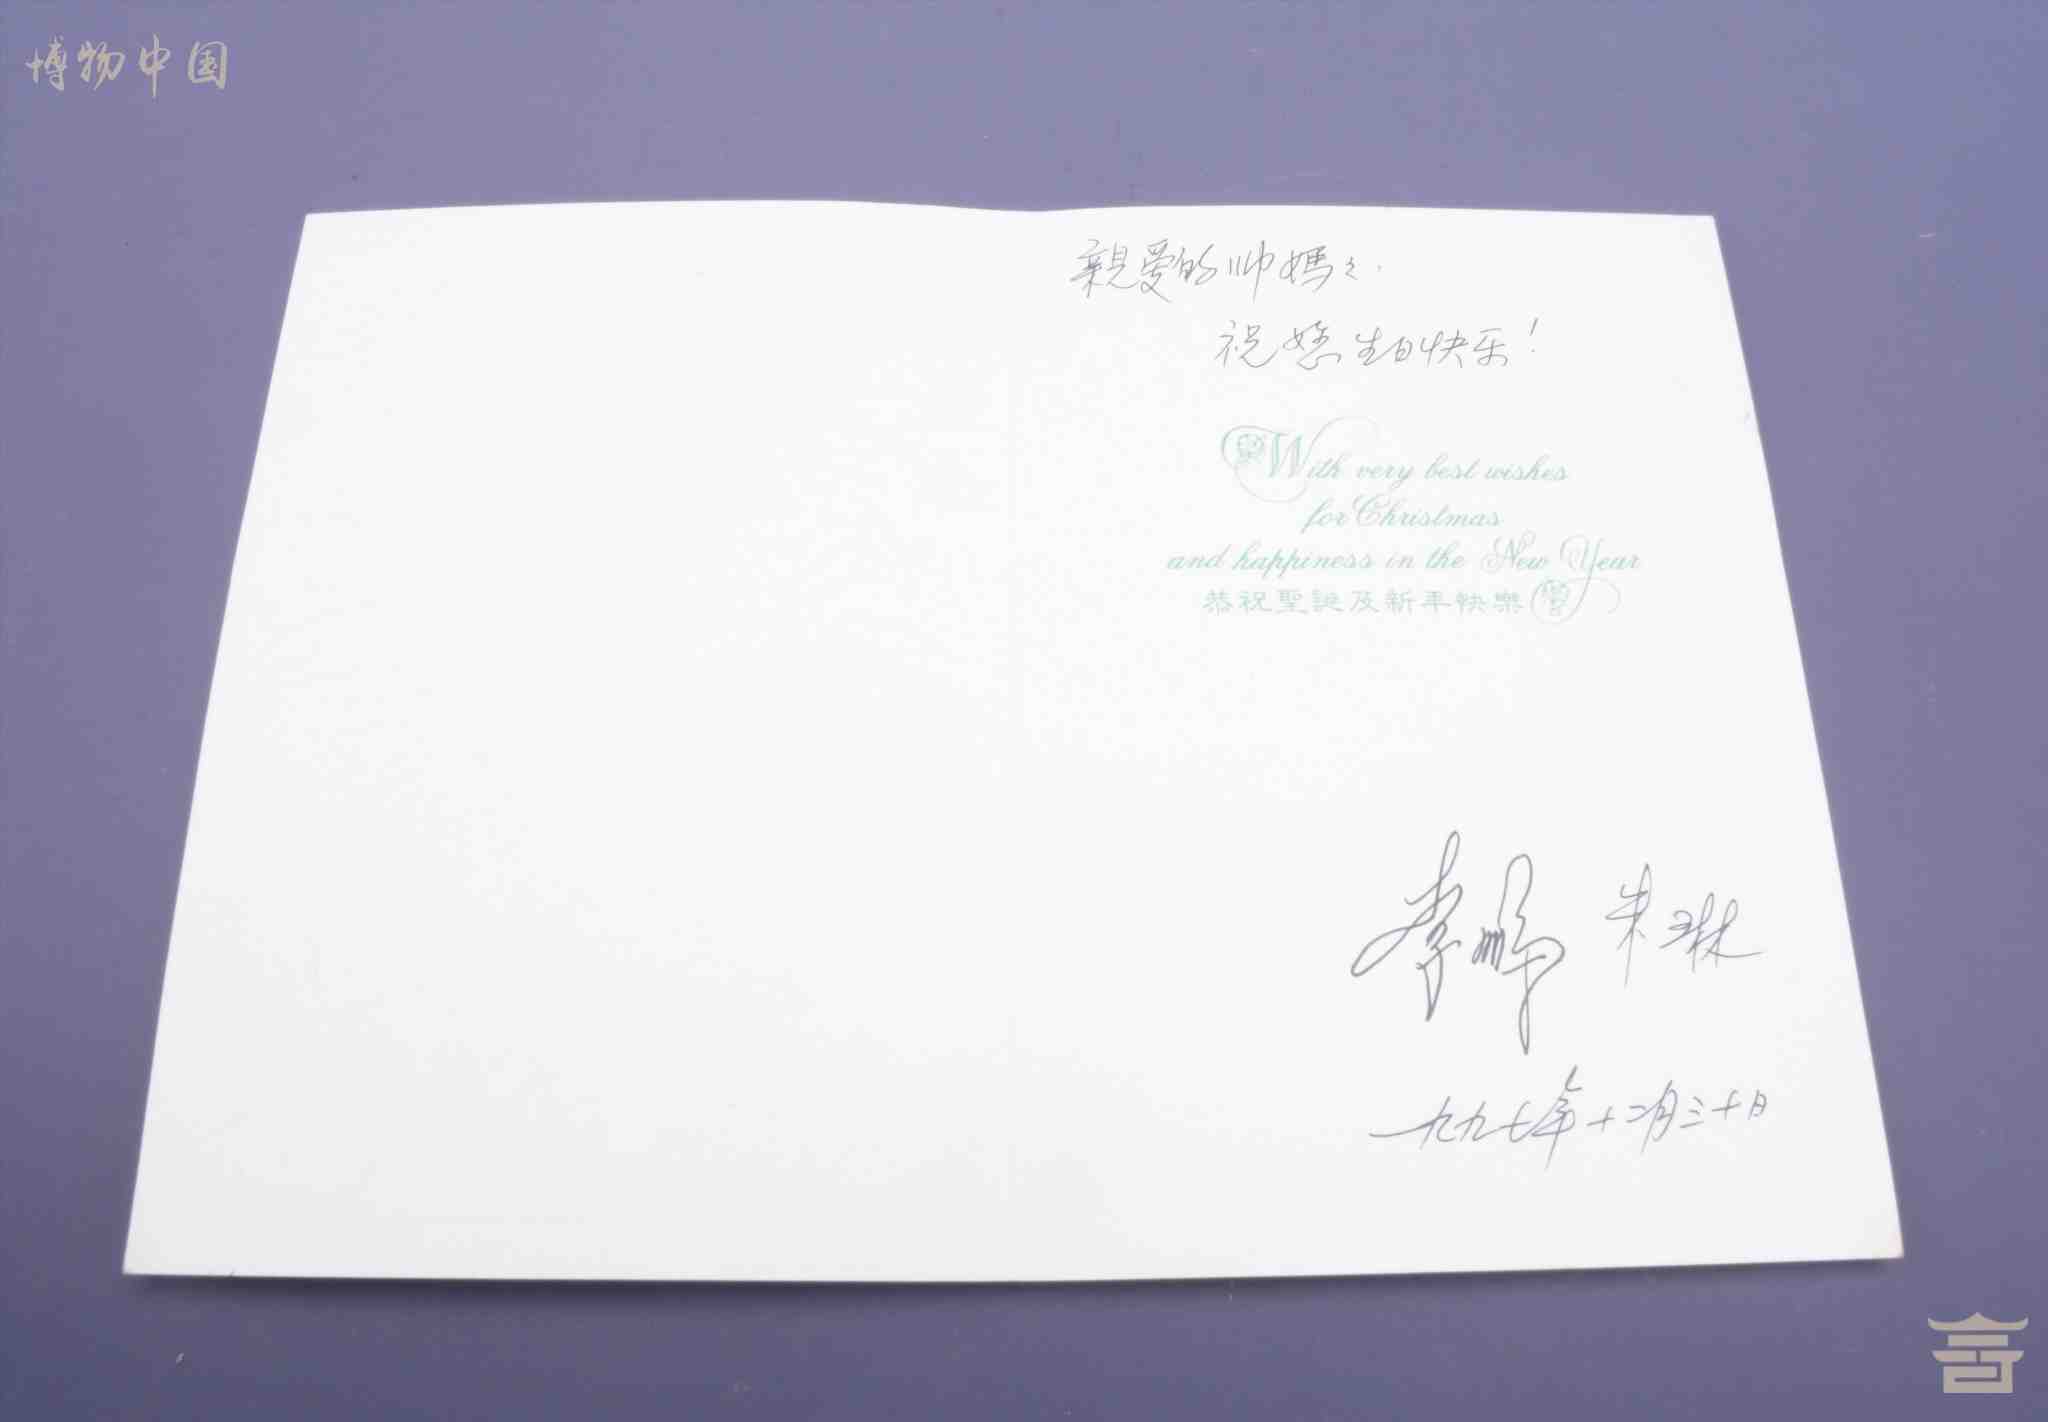 博物中国
親爱的帅媽々：
祝您生日快乐！
With very best wishes
for Christmas
and happiness in the New Year
恭祝聖誕及新年快樂
李鹏 朱琳
一九九七年十二月三十日